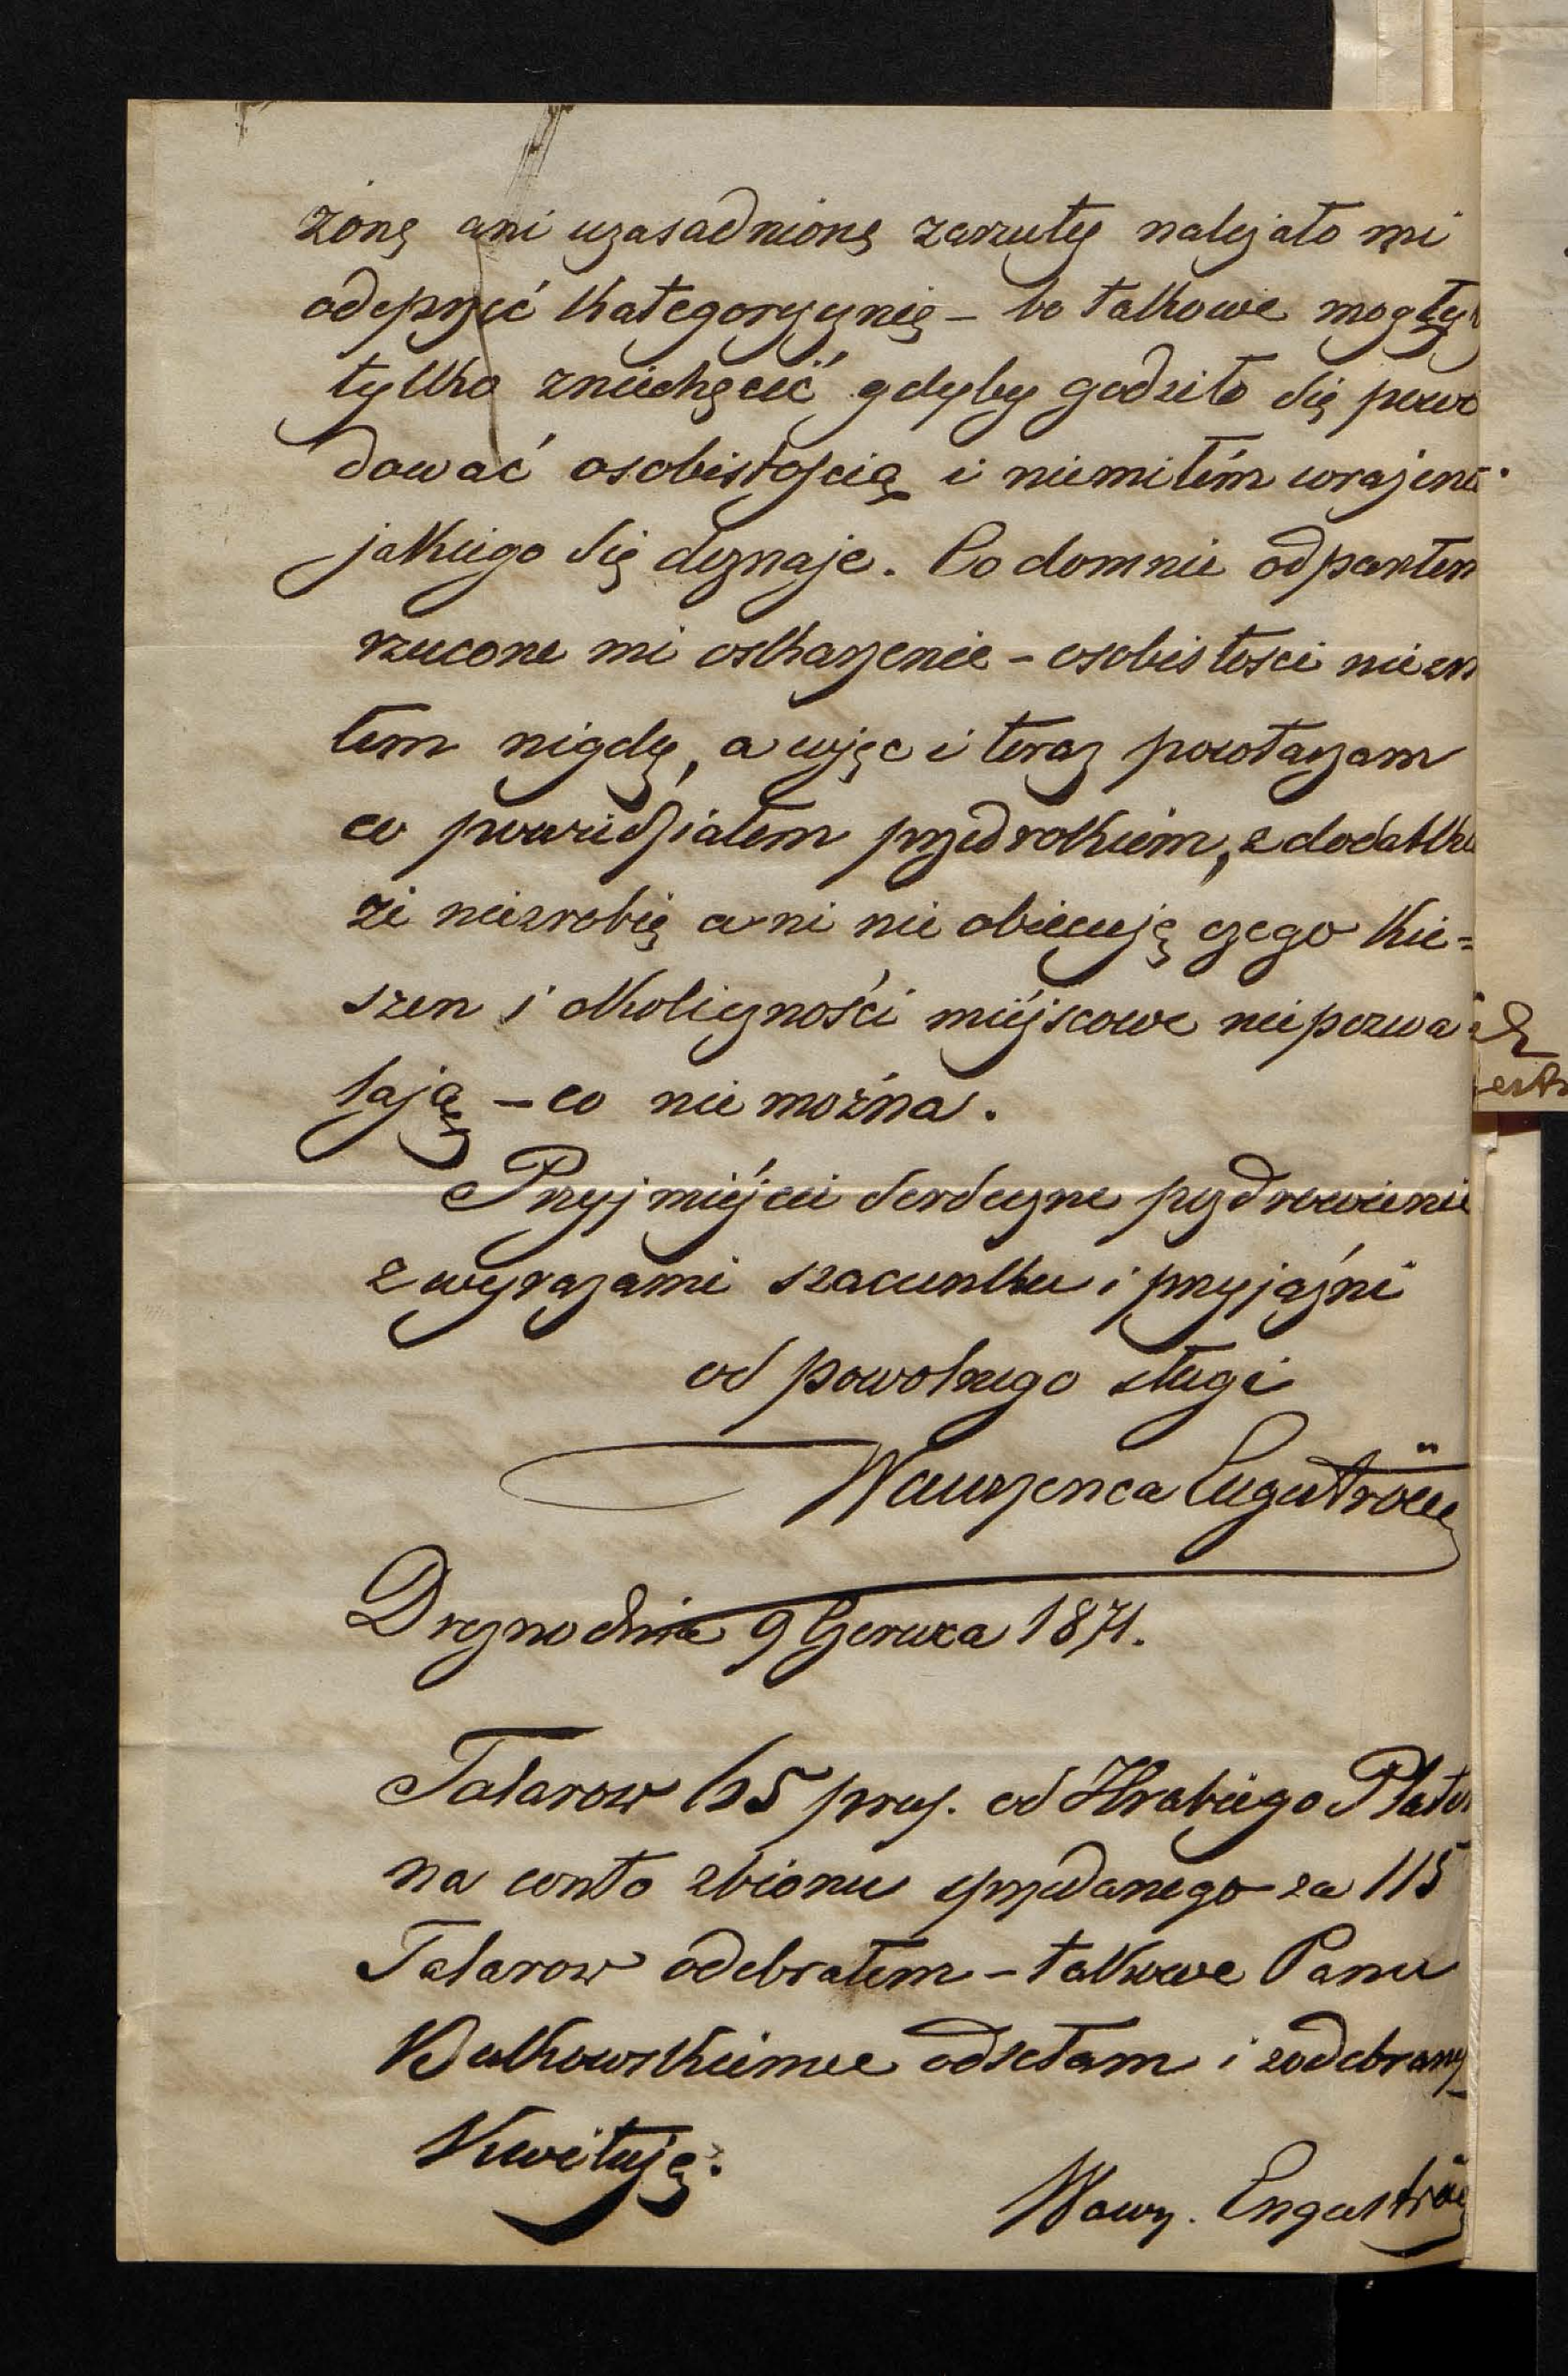 żonę ani uzasadnionę zarzutę należało mi
odeprzeć kategorycznię – bo takowe mogły
tylko zniechęcić gdyby godziło się powo
dować osobistością i niemiłém wrażeni
jakiego się doznaje. Co domnie odparłem
rzucone mi oskarżenie – osobistości niezn
łem nigdy, a więc i teraz powtarzam
co powiedziałem przedrokiem, z dodatku
że niezrobię ani nie obiecuję czego kie=
szen i okoliczności miéjscowe niepozwa
lają – co nie można.
Przyjmiéjcie serdeczne pozdrowienie
z wyrazami szacunku i przyjaźni
od powolnego sługi
Wawrzenca Engeströma
Drezno dnia 9 Czerwca 1871.
Talarow 65 prus. od Hrabiego Plater
na conto zbioru sprzedanego za 115
Talarow odebrałem – takowe Panu
Bulkowskiemu odsełam i zodebrany
Kwituję.
Wawrz. Engeström